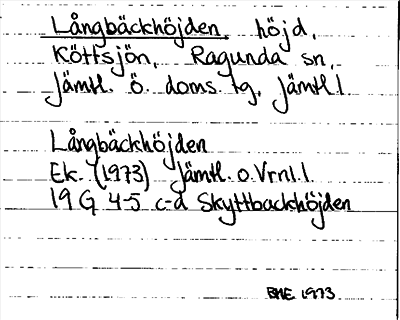 Långbäckhöjden, höjd,
Köttsjön, Ragunda sn,
Jämtl. ö. doms. tg, Jämtl. l
Långbäckhöjden
Ek. (1973) Jämtl. o. Vrnl. l.
19 G 4-5 c-d Skyttbackhöjden
BME 1973